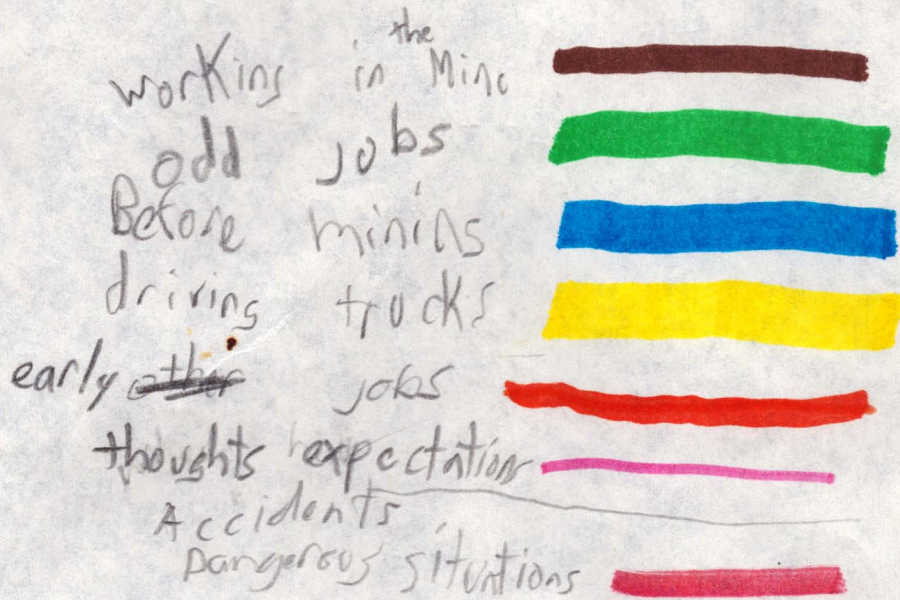 working in the Mine
odd jobs
Before mining
driving trucks
early other jobs
thoughts expectations
Accidents
Dangerous situations